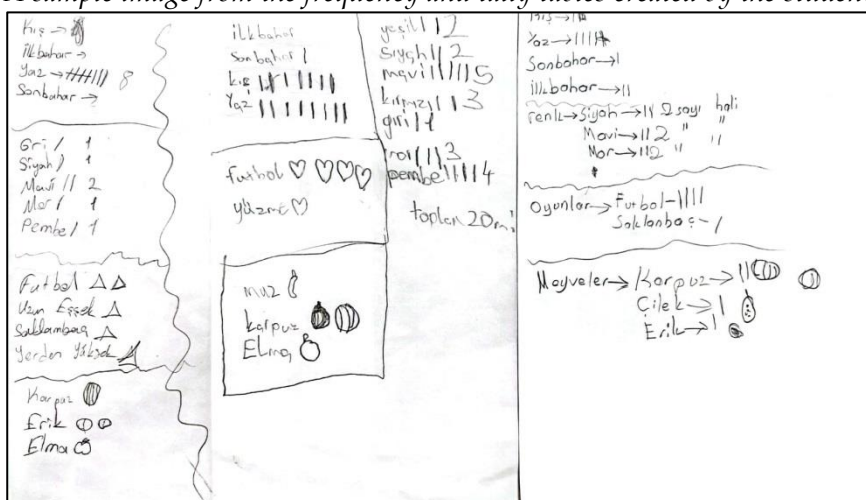 Kış →
ilkbahar →
Yaz → 8
Sonbahar →
Gri / 1
Siyah / 1
Mavi // 2
Mor / 1
Pembe / 1
Futbol
Uzun Eşşek
Saklambaç
Yerden Yüksek
Karpuz
Erik
Elma
ilkbahar
Sonbahar /
kış
Yaz
futbol
yüzme
muz
karpuz
Elma
yeşil || 2
Siyah || 2
mavi ||||| 5
kırmızı ||| 3
gri | 1
mor ||| 3
pembe |||| 4
toplam 20
Yaz →
Sonbahar → |
ilkbahar → ||
renk → Siyah → || 2 sayı hali
Mavi → || 2 " "
Mor → || 2 " "
Oyunlar → Futbol - ||||
Saklanbaç - /
Meyveler → Karpuz → ||
Çilek → |
Erik → |